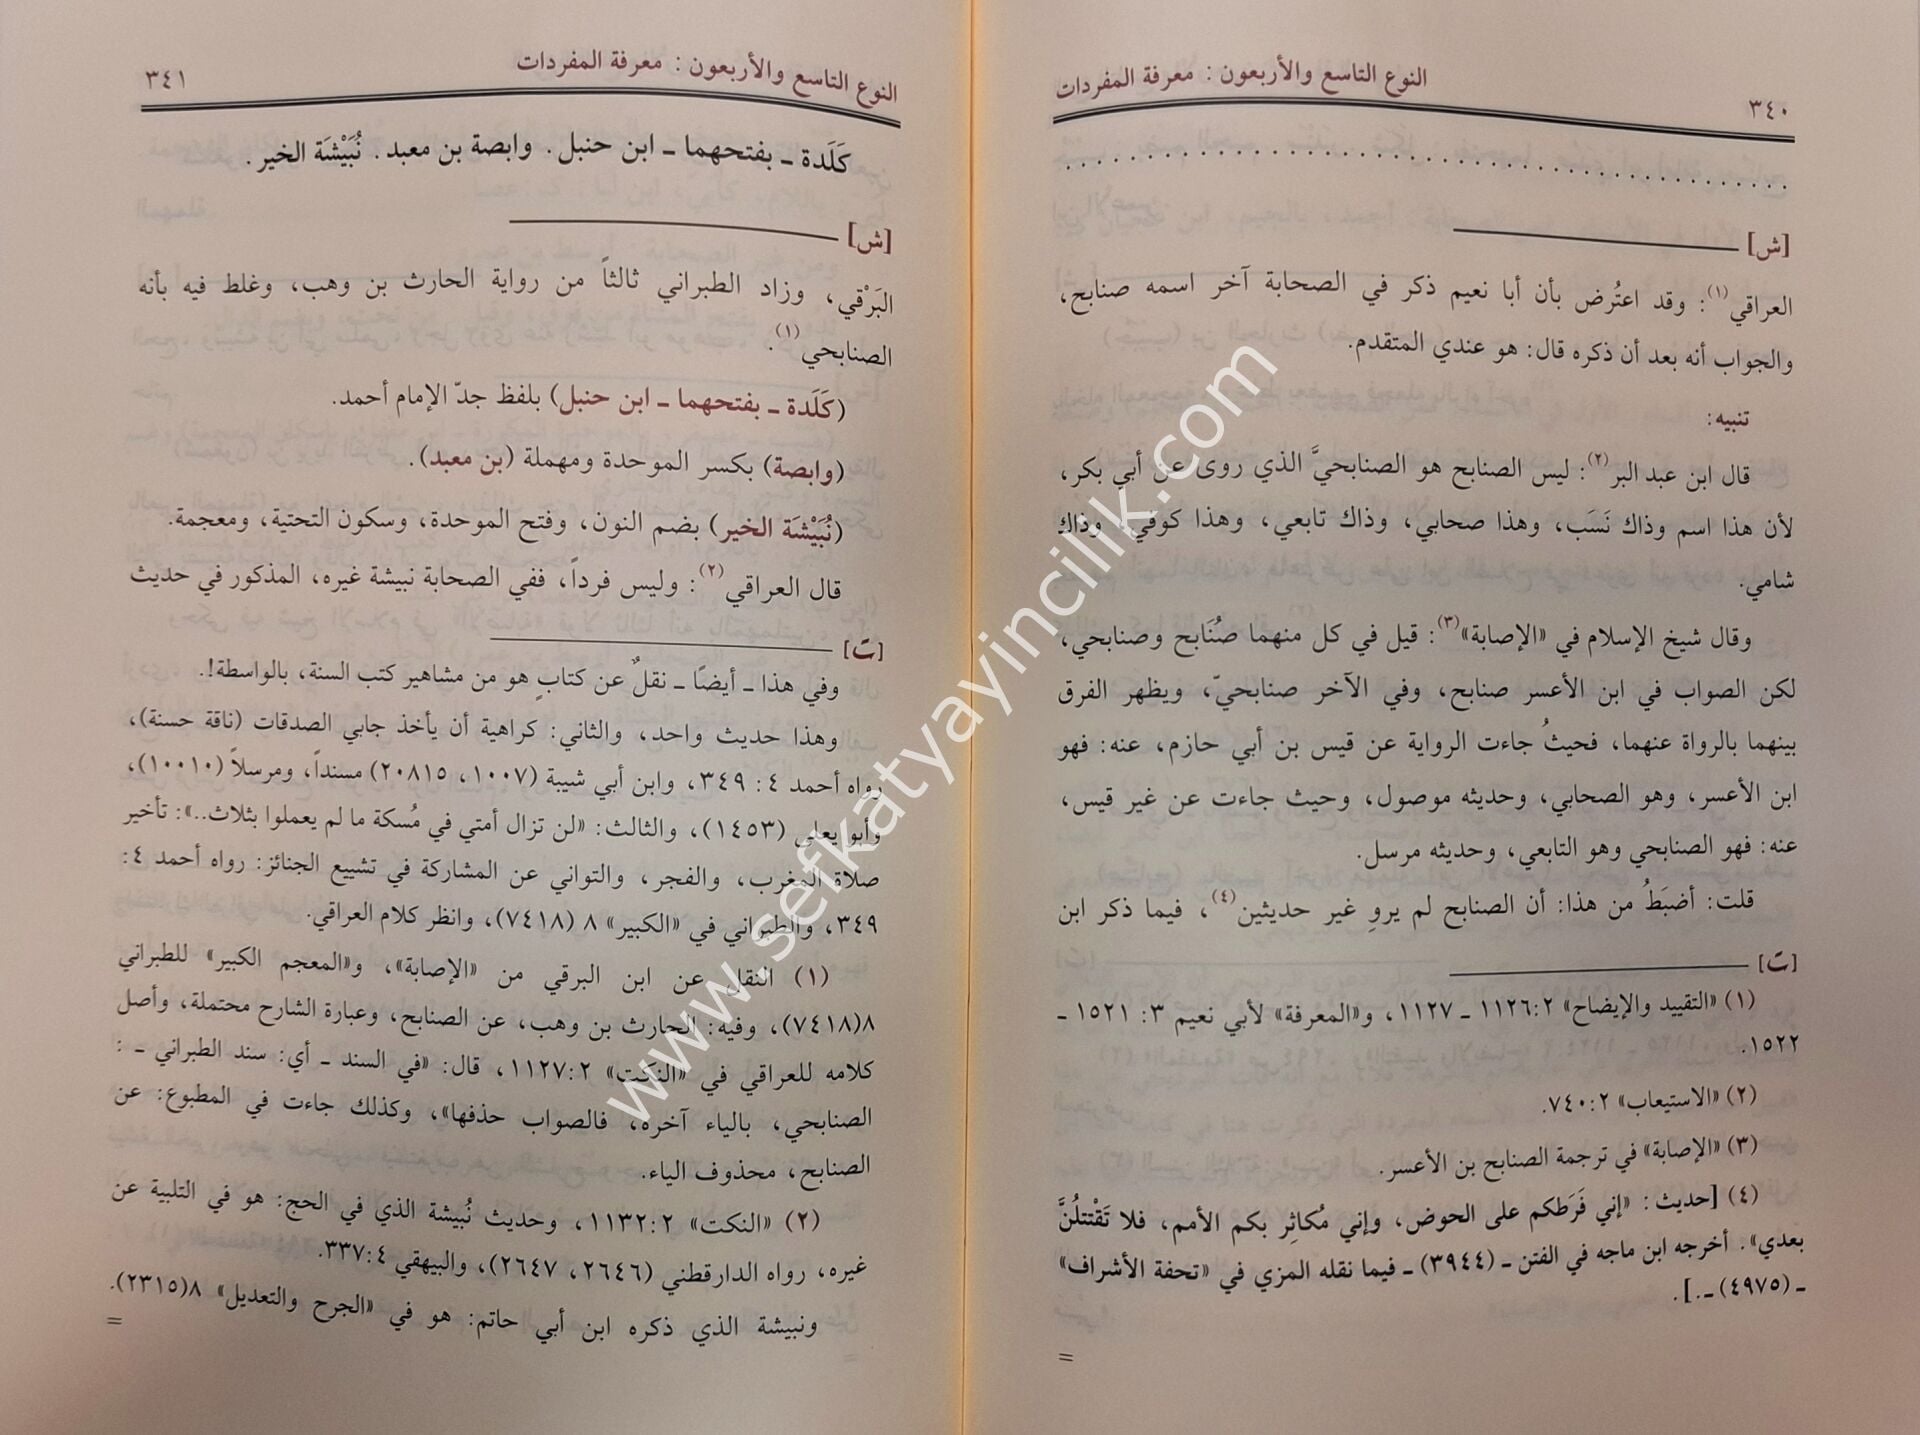 النوع التاسع والأربعون : معرفة المفردات
٣٤٠
. . . . . . . . . . . . . . . . . . . . . . . . . . . . . . . . . . . .
[ش]
العراقي(١): وقد اعتُرض بأن أبا نعيم ذكر في الصحابة آخر اسمه صنابح،
والجواب أنه بعد أن ذكره قال: هو عندي المتقدم.
تنبيه:
قال ابن عبد البر(٢): ليس الصنابح هو الصنابحيَّ الذي روى عن أبي بكر،
لأن هذا اسم وذاك نَسَب، وهذا صحابي، وذاك تابعي، وهذا كوفي، وذاك
شامي.
وقال شيخ الإسلام في «الإصابة»(٣): قيل في كل منهما صُنَابح وصنابحي،
لكن الصواب في ابن الأعسر صنابح، وفي الآخر صنابحيّ، ويظهر الفرق
بينهما بالرواة عنهما، فحيثُ جاءت الرواية عن قيس بن أبي حازم، عنه: فهو
ابن الأعسر، وهو الصحابي، وحديثه موصول، وحيث جاءت عن غير قيس،
عنه: فهو الصنابحي وهو التابعي، وحديثه مرسل.
قلت: أضبَطُ من هذا: أن الصنابح لم يروِ غير حديثين(٤)، فيما ذكر ابن
[ت]
(١) «التقييد والإيضاح» ٢:‏١١٢٦ ـ ١١٢٧، و«المعرفة» لأبي نعيم ٣: ١٥٢١ ـ
١٥٢٢.
(٢) «الاستيعاب» ٢:‏٧٤٠.
(٣) «الإصابة» في ترجمة الصنابح بن الأعسر.
(٤) [حديث: «إني فَرَطكم على الحوض، وإني مُكاثِر بكم الأمم، فلا تَقْتتلُنَّ
بعدي». أخرجه ابن ماجه في الفتن ـ (٣٩٤٤) ـ فيما نقله المزي في «تحفة الأشراف»
ـ (٤٩٧٥) ـ.].
=
النوع التاسع والأربعون : معرفة المفردات
٣٤١
كَلَدة ـ بفتحهما ـ ابن حنبل. وابصة بن معبد. نُبَيْشَة الخير.
[ش]
البَرْقي، وزاد الطبراني ثالثاً من رواية الحارث بن وهب، وغلط فيه بأنه
الصنابحي(١).
(كَلَدة ـ بفتحهما ـ ابن حنبل) بلفظ جدّ الإمام أحمد.
(وابصة) بكسر الموحدة ومهملة (بن معبد).
(نُبَيْشَة الخير) بضم النون، وفتح الموحدة، وسكون التحتية، ومعجمة.
قال العراقي(٢): وليس فرداً، ففي الصحابة نبيشة غيره، المذكور في حديث
[ت]
وفي هذا ـ أيضاً ـ نقلٌ عن كتابٍ هو من مشاهير كتب السنة، بالواسطة!.
وهذا حديث واحد، والثاني: كراهية أن يأخذ جابي الصدقات (ناقة حسنة)،
رواه أحمد ٤: ٣٤٩، وابن أبي شيبة (١٠٠٧، ٢٠٨١٥) مسنداً، ومرسلاً (١٠٠١٠)،
وأبو يعلى (١٤٥٣)، والثالث: «لن تزال أمتي في مُسكة ما لم يعملوا بثلاث..»: تأخير
صلاة المغرب، والفجر، والتواني عن المشاركة في تشييع الجنائز: رواه أحمد ٤:
٣٤٩، والطبراني في «الكبير» ٨ (٧٤١٨)، وانظر كلام العراقي.
(١) النقل عن ابن البرقي من «الإصابة»، و«المعجم الكبير» للطبراني
٨(٧٤١٨)، وفيه: الحارث بن وهب، عن الصنابح، وعبارة الشارح محتملة، وأصل
كلامه للعراقي في «النكت» ٢:‏١١٢٧، قال: «في السند ـ أي: سند الطبراني ـ :
الصنابحي، بالياء آخره، فالصواب حذفها»، وكذلك جاءت في المطبوع: عن
الصنابح، محذوف الياء.
(٢) «النكت» ٢:‏١١٣٢، وحديث نُبيشة الذي في الحج: هو في التلبية عن
غيره، رواه الدارقطني (٢٦٤٦، ٢٦٤٧)، والبيهقي ٤:‏٣٣٧.
ونبيشة الذي ذكره ابن أبي حاتم: هو في «الجرح والتعديل» ٨(٢٣١٥).
=
www.sefkatyayincilik.com